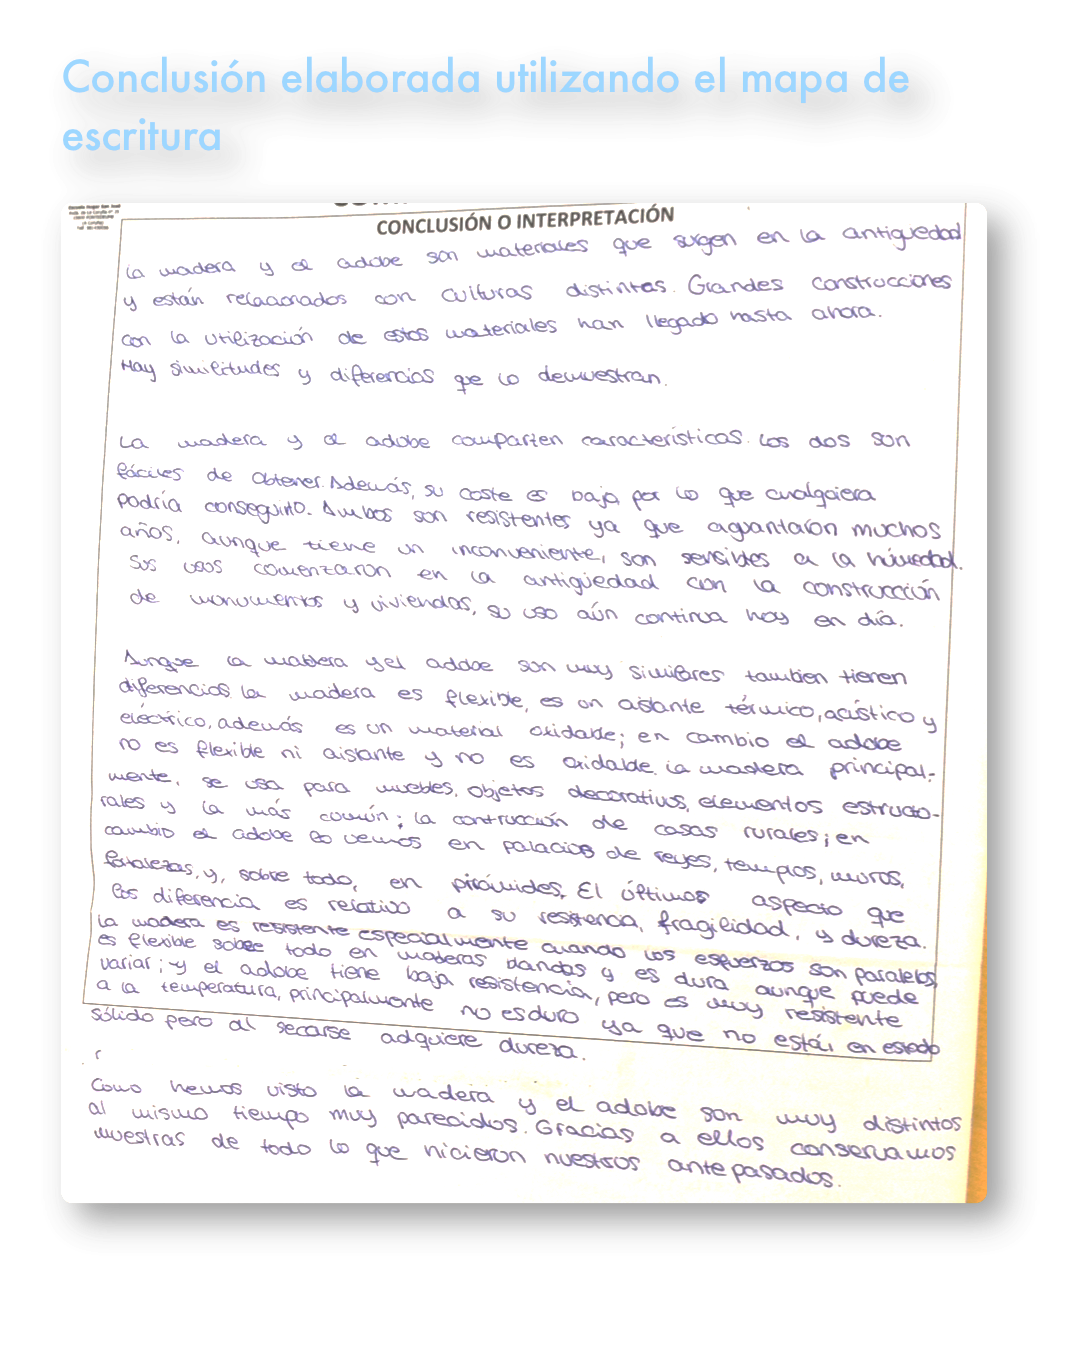 Conclusión elaborada utilizando el mapa de
escritura
Escuela Hogar San José
CONCLUSIÓN O INTERPRETACIÓN
La madera y el adobe son materiales que surgen en la antiguedad
y están relacionados con culturas distintas. Grandes construcciones
con la utilización de estos materiales han llegado hasta ahora.
Hay similitudes y diferencias que lo demuestran.
La madera y el adobe comparten características. Los dos son
fáciles de obtener. Además, su coste es bajo, por lo que cualquiera
podría conseguirlo. Ambos son resistentes ya que aguantaron muchos
años, aunque tiene un inconveniente, son sensibles a la húmedad.
Sus usos comenzaron en la antigüedad con la construcción
de monumentos y viviendas, su uso aún continua hoy en día.
Aunque la madera y el adobe son muy similares tambien tienen
diferencias. La madera es flexible, es un aislante térmico, acústico y
eléctrico, además es un material oxidable; en cambio el adobe
no es flexible ni aislante y no es oxidable. La madera principal-
mente, se usa para muebles, objetos decorativos, elementos estructu-
rales y la más común; la contrucción de casas rurales; en
cambio el adobe lo vemos en palacios de reyes, templos, muros,
fortalezas, y, sobre todo, en pirámides. El últimos aspecto que
los diferencia es relativo a su resistencia, fragilidad, y dureza.
La madera es resistente especialmente cuando los esfuerzos son paralelos,
es flexible sobre todo en maderas blandas y es dura aunque puede
variar; y el adobe tiene baja resistencia, pero es muy resistente
a la temperatura, principalmente no es duro ya que no está en estado
sólido pero al secarse adquiere dureza.
Como hemos visto la madera y el adobe son muy distintos
al mismo tiempo muy parecidos. Gracias a ellos conservamos
muestras de todo lo que hicieron nuestros antepasados.